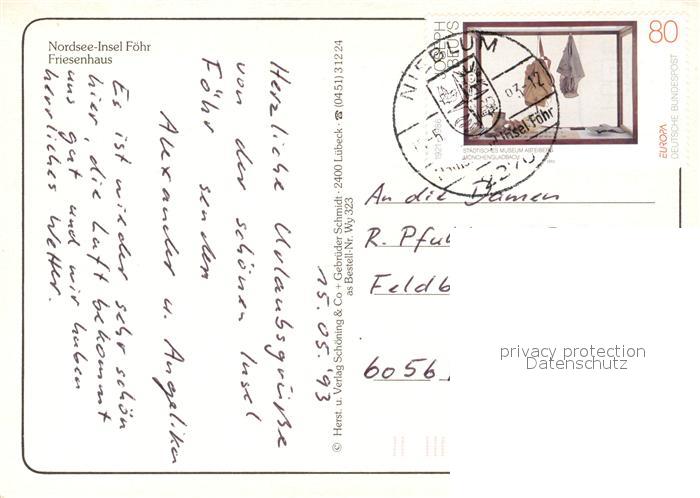 Nordsee-Insel Föhr
Friesenhaus
15.05.'93
Herzliche Urlaubsgrüße
von der schönen Insel
Föhr senden
Alexander u. Angelika
Es ist wieder sehr schön
hier, die Luft bekommt
uns gut und wir haben
herrliches Wetter.
© Herst. u. Verlag Schöning & Co + Gebrüder Schmidt · 2400 Lübeck · ☎ (0451) 312 24
as Bestell-Nr. Wy 323
JOSEPH BEUYS
1921-1986
80
DEUTSCHE BUNDESPOST
EUROPA
STÄDTISCHES MUSEUM ABTEIBERG
MÖNCHENGLADBACH
NIEBLUM
Insel Föhr
An die Damen
R. Pfu
Feldb
6056
privacy protection
Datenschutz